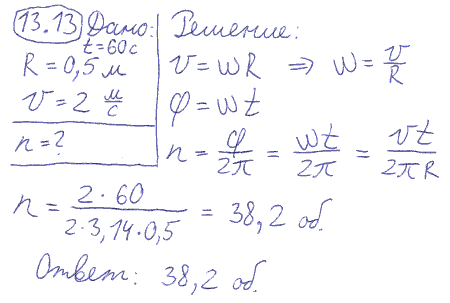 13.13 Дано:
t = 60 с
R = 0,5 м
v = 2 м/с
n = ?
Решение:
v = wR ⇒ w = v/R
φ = wt
n = φ/2π = wt/2π = vt/2πR
n = 2·60/2·3,14·0,5 = 38,2 об.
Ответ: 38,2 об.